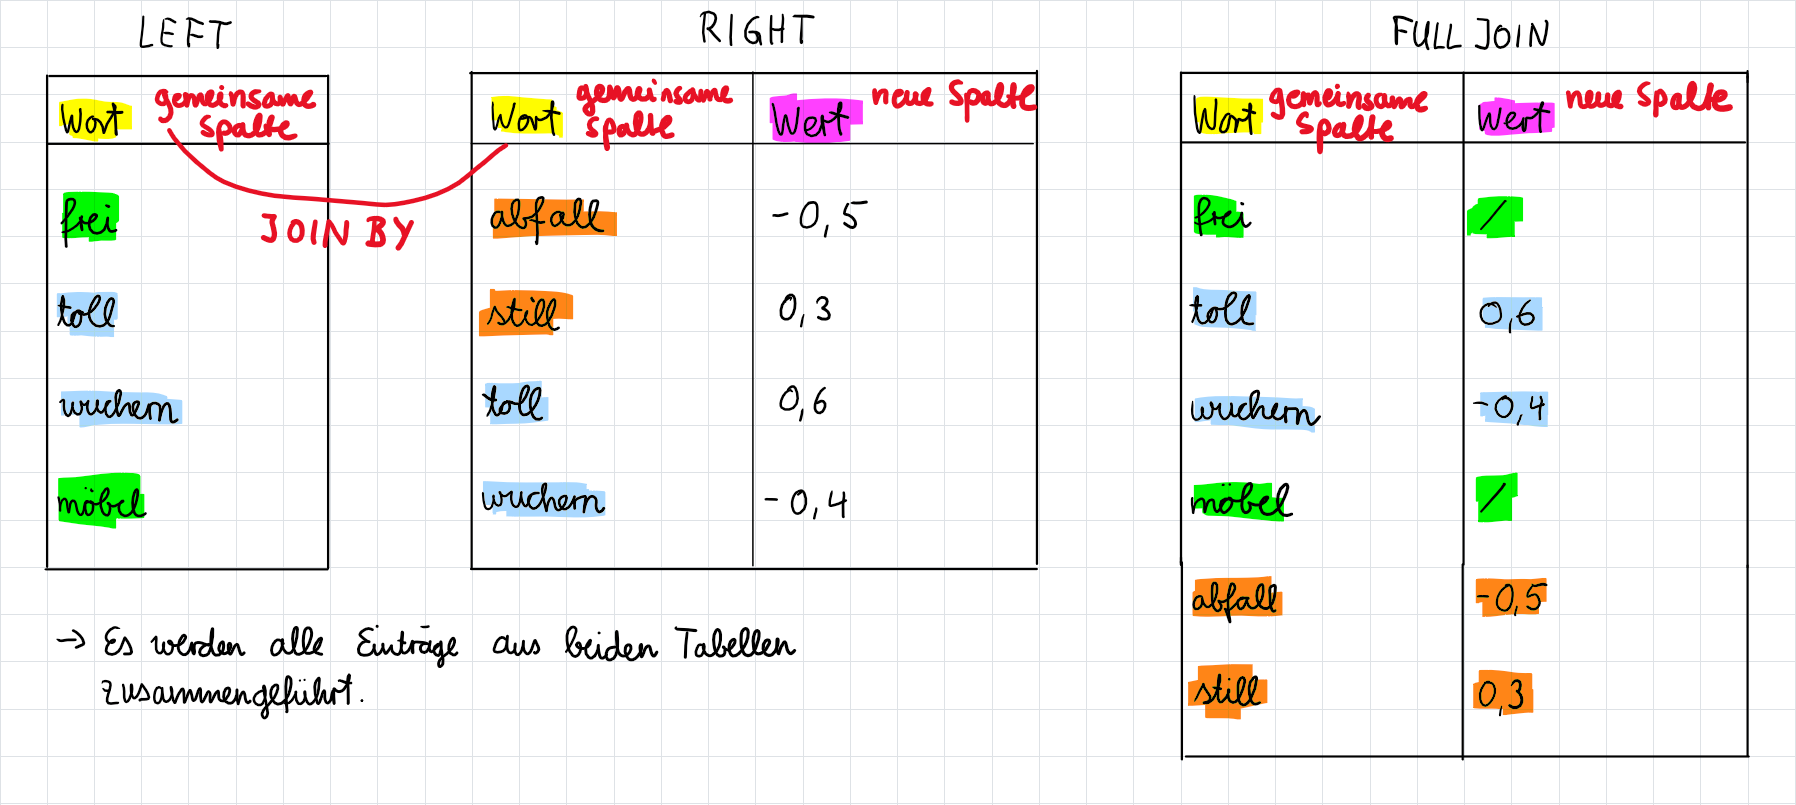 LEFT
Wort gemeinsame
Spalte
frei
toll
wuchern
möbel
JOIN BY
RIGHT
Wort gemeinsame
Spalte
Wert neue Spalte
abfall -0,5
still 0,3
toll 0,6
wuchern -0,4
FULL JOIN
Wort gemeinsame
Spalte
Wert neue Spalte
frei /
toll 0,6
wuchern -0,4
möbel /
abfall -0,5
still 0,3
→ Es werden alle Einträge aus beiden Tabellen
zusammengeführt.